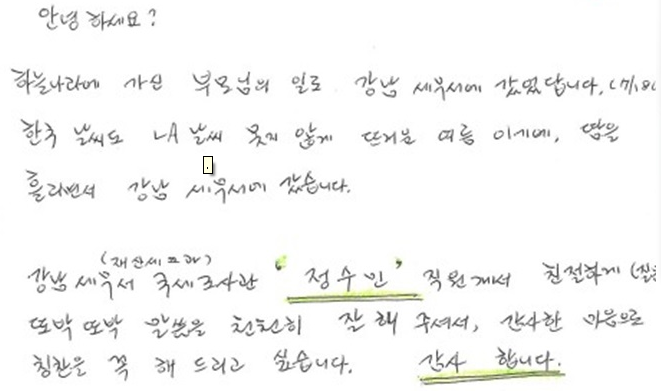 안녕하세요?
하늘나라에 가신 부모님의 일로 강남 세무서에 갔었답니다. (7/8
한국 날씨도 LA 날씨 못지 않게 뜨거운 여름 이기에, 땀을
흘리면서 강남 세무서에 갔습니다.
(재산세과)
강남 세무서 국세조사관 "정수인" 직원께서 친절하게
또박 또박 말씀을 천천히 잘 해 주셔서, 감사한 마음으로
칭찬을 꼭 해 드리고 싶습니다. 감사 합니다.